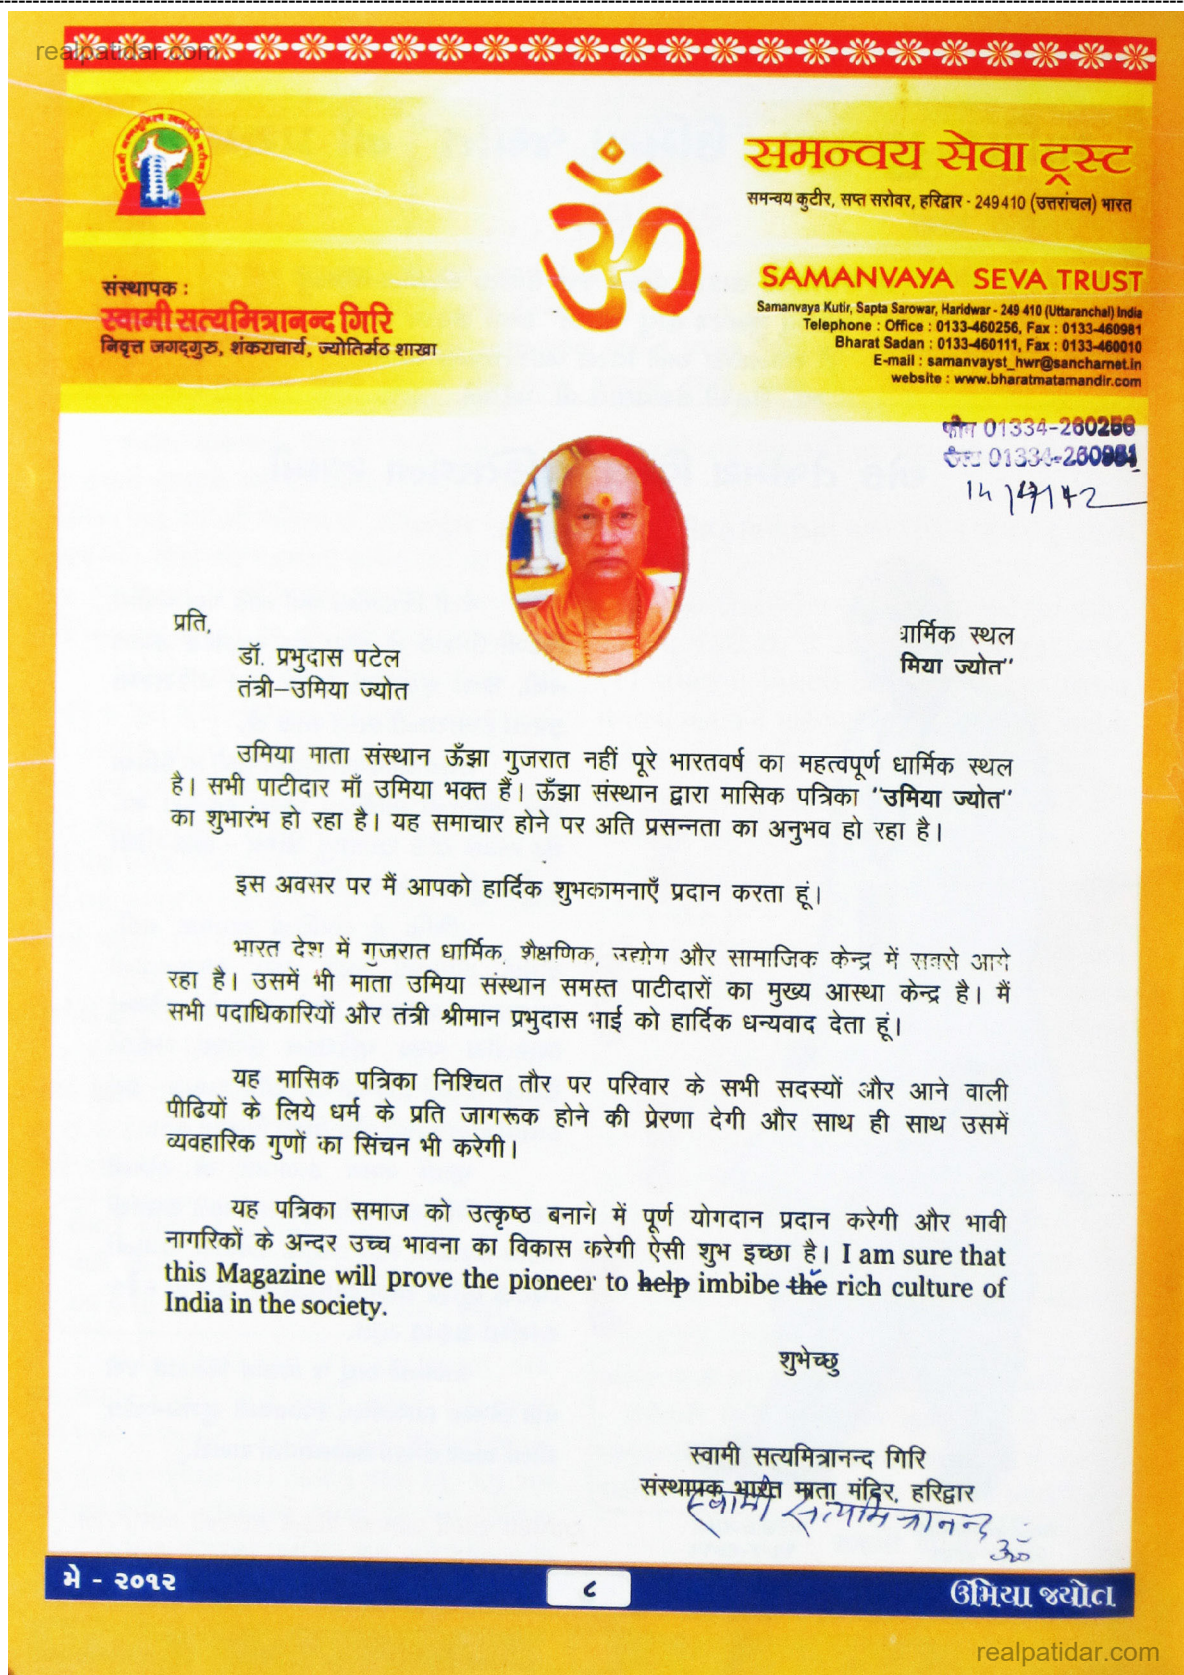 realpatidar.com
संस्थापक :
स्वामी सत्यमित्रानन्द गिरि
निवृत्त जगद्गुरु, शंकराचार्य, ज्योतिर्मठ शाखा
समन्वय सेवा ट्रस्ट
समन्वय कुटीर, सप्त सरोवर, हरिद्वार - 249410 (उत्तरांचल) भारत
SAMANVAYA SEVA TRUST
Samanvaya Kutir, Sapta Sarowar, Haridwar - 249 410 (Uttaranchal) India
Telephone : Office : 0133-460256, Fax : 0133-460981
Bharat Sadan : 0133-460111, Fax : 0133-460010
E-mail : samanvayst_hwr@sancharnet.in
website : www.bharatmatamandir.com
फोन 01334-260256
01334-260981
प्रति,
डॉ. प्रभुदास पटेल
तंत्री–उमिया ज्योत
ार्मिक स्थल
मिया ज्योत"
उमिया माता संस्थान ऊँझा गुजरात नहीं पूरे भारतवर्ष का महत्वपूर्ण धार्मिक स्थल
है। सभी पाटीदार माँ उमिया भक्त हैं। ऊँझा संस्थान द्वारा मासिक पत्रिका "उमिया ज्योत"
का शुभारंभ हो रहा है। यह समाचार होने पर अति प्रसन्नता का अनुभव हो रहा है।
इस अवसर पर मैं आपको हार्दिक शुभकामनाएँ प्रदान करता हूं।
भारत देश में गुजरात धार्मिक, शैक्षणिक, उद्योग और सामाजिक केन्द्र में सबसे आगे
रहा है। उसमें भी माता उमिया संस्थान समस्त पाटीदारों का मुख्य आस्था केन्द्र है। मैं
सभी पदाधिकारियों और तंत्री श्रीमान प्रभुदास भाई को हार्दिक धन्यवाद देता हूं।
यह मासिक पत्रिका निश्चित तौर पर परिवार के सभी सदस्यों और आने वाली
पीढियों के लिये धर्म के प्रति जागरूक होने की प्रेरणा देगी और साथ ही साथ उसमें
व्यवहारिक गुणों का सिंचन भी करेगी।
यह पत्रिका समाज को उत्कृष्ठ बनाने में पूर्ण योगदान प्रदान करेगी और भावी
नागरिकों के अन्दर उच्च भावना का विकास करेगी ऐसी शुभ इच्छा है। I am sure that
this Magazine will prove the pioneer to help imbibe the rich culture of
India in the society.
शुभेच्छु
स्वामी सत्यमित्रानन्द गिरि
संस्थापक भारत माता मंदिर, हरिद्वार
स्वामी सत्यमित्रानन्द
ॐ
મે - ૨૦૧૨
૮
ઉમિયા જ્યોત
realpatidar.com